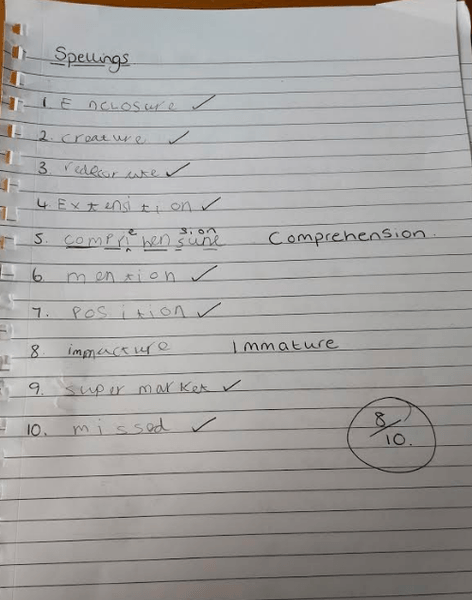 Spellings
1. Enclosure ✓
2. creature ✓
3. redecorate ✓
4. Extensition ✓
5. comprihensune e sion Comprehension.
6. mention ✓
7. Position ✓
8. impacture Immature
9. super market ✓
10. missed ✓
8/10.